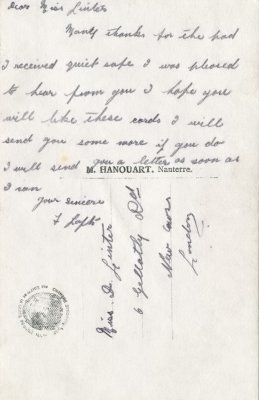 Dear Miss Linter
Many thanks for the pad
I received quiet safe I was pleased
to hear from you I hope you
will like these cards I will
send you some more if you do
I will send you a letter as soon as
I can
your sincere
F Loft
M. HANOUART, Nanterre.
Miss. D. Linter
6 Gellatly Rd
New Cross
London